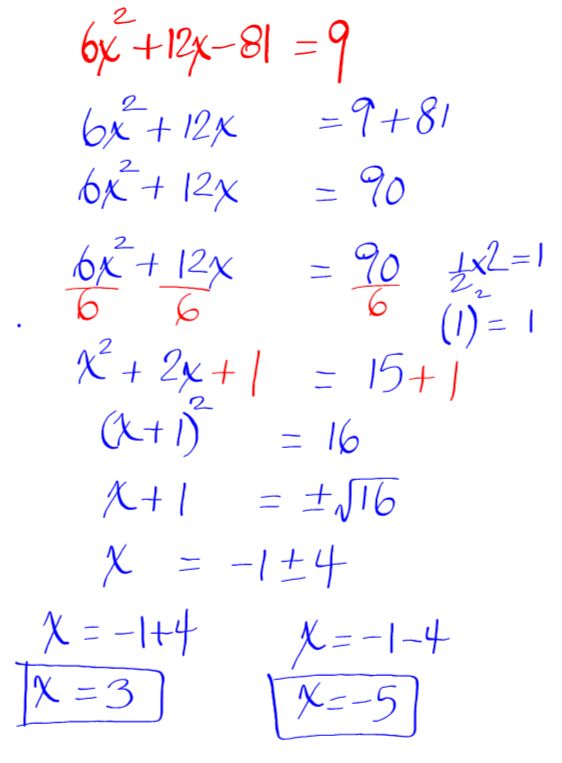 6x² + 12x - 81 = 9
6x² + 12x = 9 + 81
6x² + 12x = 90
6x²/6 + 12x/6 = 90/6
1/2 x 2 = 1
(1)² = 1
x² + 2x + 1 = 15 + 1
(x + 1)² = 16
x + 1 = ±√16
x = -1 ± 4
x = -1 + 4
x = 3
x = -1 - 4
x = -5